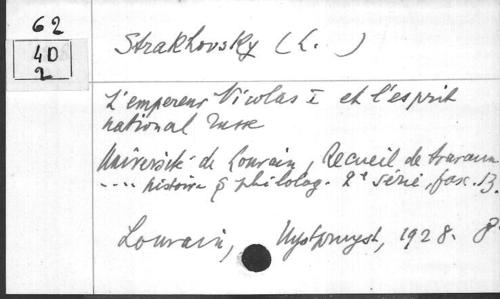 62
4D
2
Strakhovsky (L. )
L'empereur Nicolas I et l'esprit
national russe
Université de Louvain, Recueil de travaux
.... histoire & philolog. 2e série, fasc. 13.
Louvain, Uystpruyst, 1928. 8°